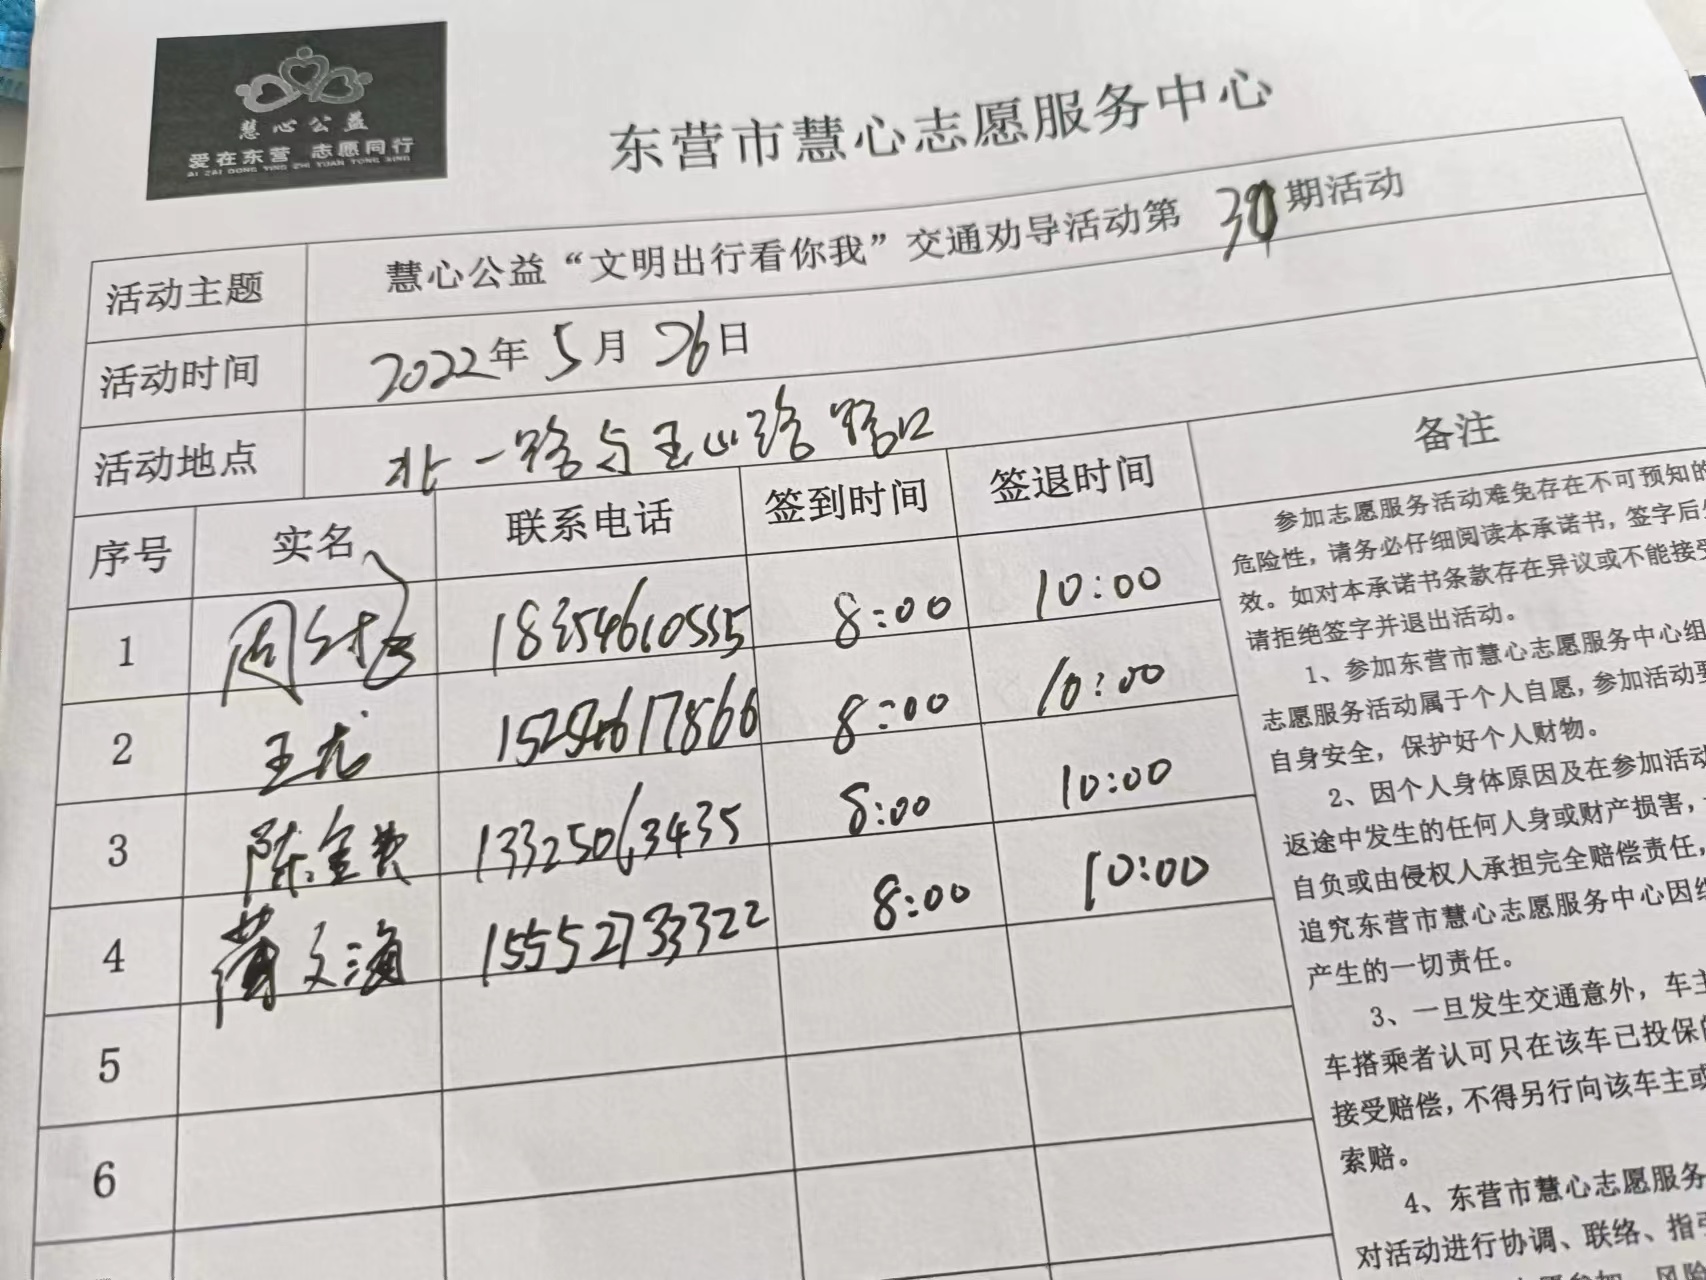 慧心公益
爱在东营 志愿同行
AI ZAI DONG YING ZHI YUAN TONG XING
东营市慧心志愿服务中心
活动主题 慧心公益“文明出行看你我”交通劝导活动第 期活动
活动时间 2022年5月26日
活动地点 北一路与 路路口
序号 实名 联系电话 签到时间 签退时间 备注
1 周 18354610555 8:00 10:00
2 王龙 8:00 10:00
3 陈金 13325063435 8:00 10:00
4 文海 15552733322 8:00 10:00
5
6
参加志愿服务活动难免存在不可预知的
危险性，请务必仔细阅读本承诺书，签字后
效。如对本承诺书条款存在异议或不能接受
请拒绝签字并退出活动。
1、参加东营市慧心志愿服务中心组
志愿服务活动属于个人自愿，参加活动要
自身安全，保护好个人财物。
2、因个人身体原因及在参加活动
返途中发生的任何人身或财产损害，
自负或由侵权人承担完全赔偿责任，
追究东营市慧心志愿服务中心因组
产生的一切责任。
3、一旦发生交通意外，车主
车搭乘者认可只在该车已投保的
接受赔偿，不得另行向该车主或
索赔。
4、东营市慧心志愿服务
对活动进行协调、联络、指引